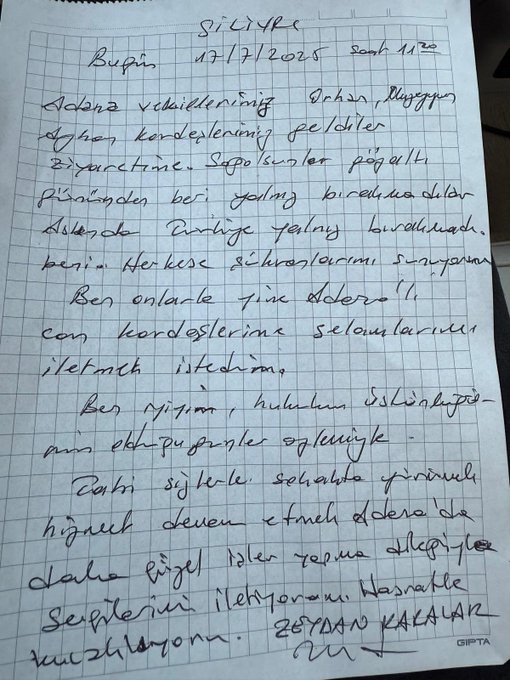 SİLİVRİ
Bugün 17/7/2025 saat 11:20
Adana vekillerimiz Orhan, Müzeyyen
Ayhan kardeşlerimiz geldiler
ziyaretime. Sağolsunlar gözaltı
gününden beri yalnız bırakmadılar
Aslında Türkiye yalnız bırakmadı.
beni. Herkese şükranlarımı sunuyorum
Ben onlarla yine Adana'lı
can kardeşlerime selamlarımı
iletmek istedim.
Ben iyiyim, hukukun üstünlüğü-
nün olduğu günler özlemiyle.
Tabi sizlerle sokakta yürümek
hizmete devam etmek Adana'da
daha güzel işler yapma dileğiyle
Sevgilerimi iletiyorum. Hasretle
kucaklıyorum. ZEYDAN KARALAR
GIPTA